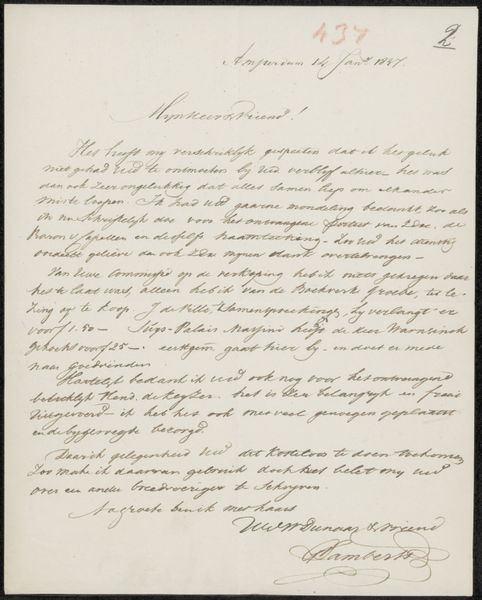 437
2
Amsterdam 14 Jan. 1837.
Mijn Heer & Vriend!
Het heeft my verschrikkelyk gespeeten dat ik het geluk
niet gehad Ued te ontmoeten by Ued verblyf alhier het was
dan ook zeer ongelukkig dat alles samen liep om elkander
mis te loopen. Ik had Ued gaarne mondeling bedankt, zoo als
ik nu schriftelyk doe voor het ontvangene portret van den
Baron v. Capellen en deszelfs naamteekening
gelieve dan ook myn dank over te brengen
Van Uwe Commissie op de verkooping heb ik niets gekregen
het te laat was, alleen heb ik van de Boekverk Groebe, ter le-
zing op te koop J de Ville, Samenspreekinge, hy verlangt er
voor f 1.50 — Palais heeft de Heer
gekocht voor f 25 — gaat hier by en doet er mede
naar goedvinden
Hartelyk bedank ik Ued ook nog voor het ontvangene
Hend. de Keyser. het is zeer belangryk en fraai
uitgevoerd — ik heb het ook met veel genoegen geplaatst
en de bygevoegde bezorgd.
Daar ik gelegenheid heb dit kosteloos te doen toekomen,
zoo make ik daarvan gebruik doch het belet my Ued
over een ander breedvoeriger te schryven.
Na groete ben ik met haast
UEdW Dienaar & Vriend
Lamberts